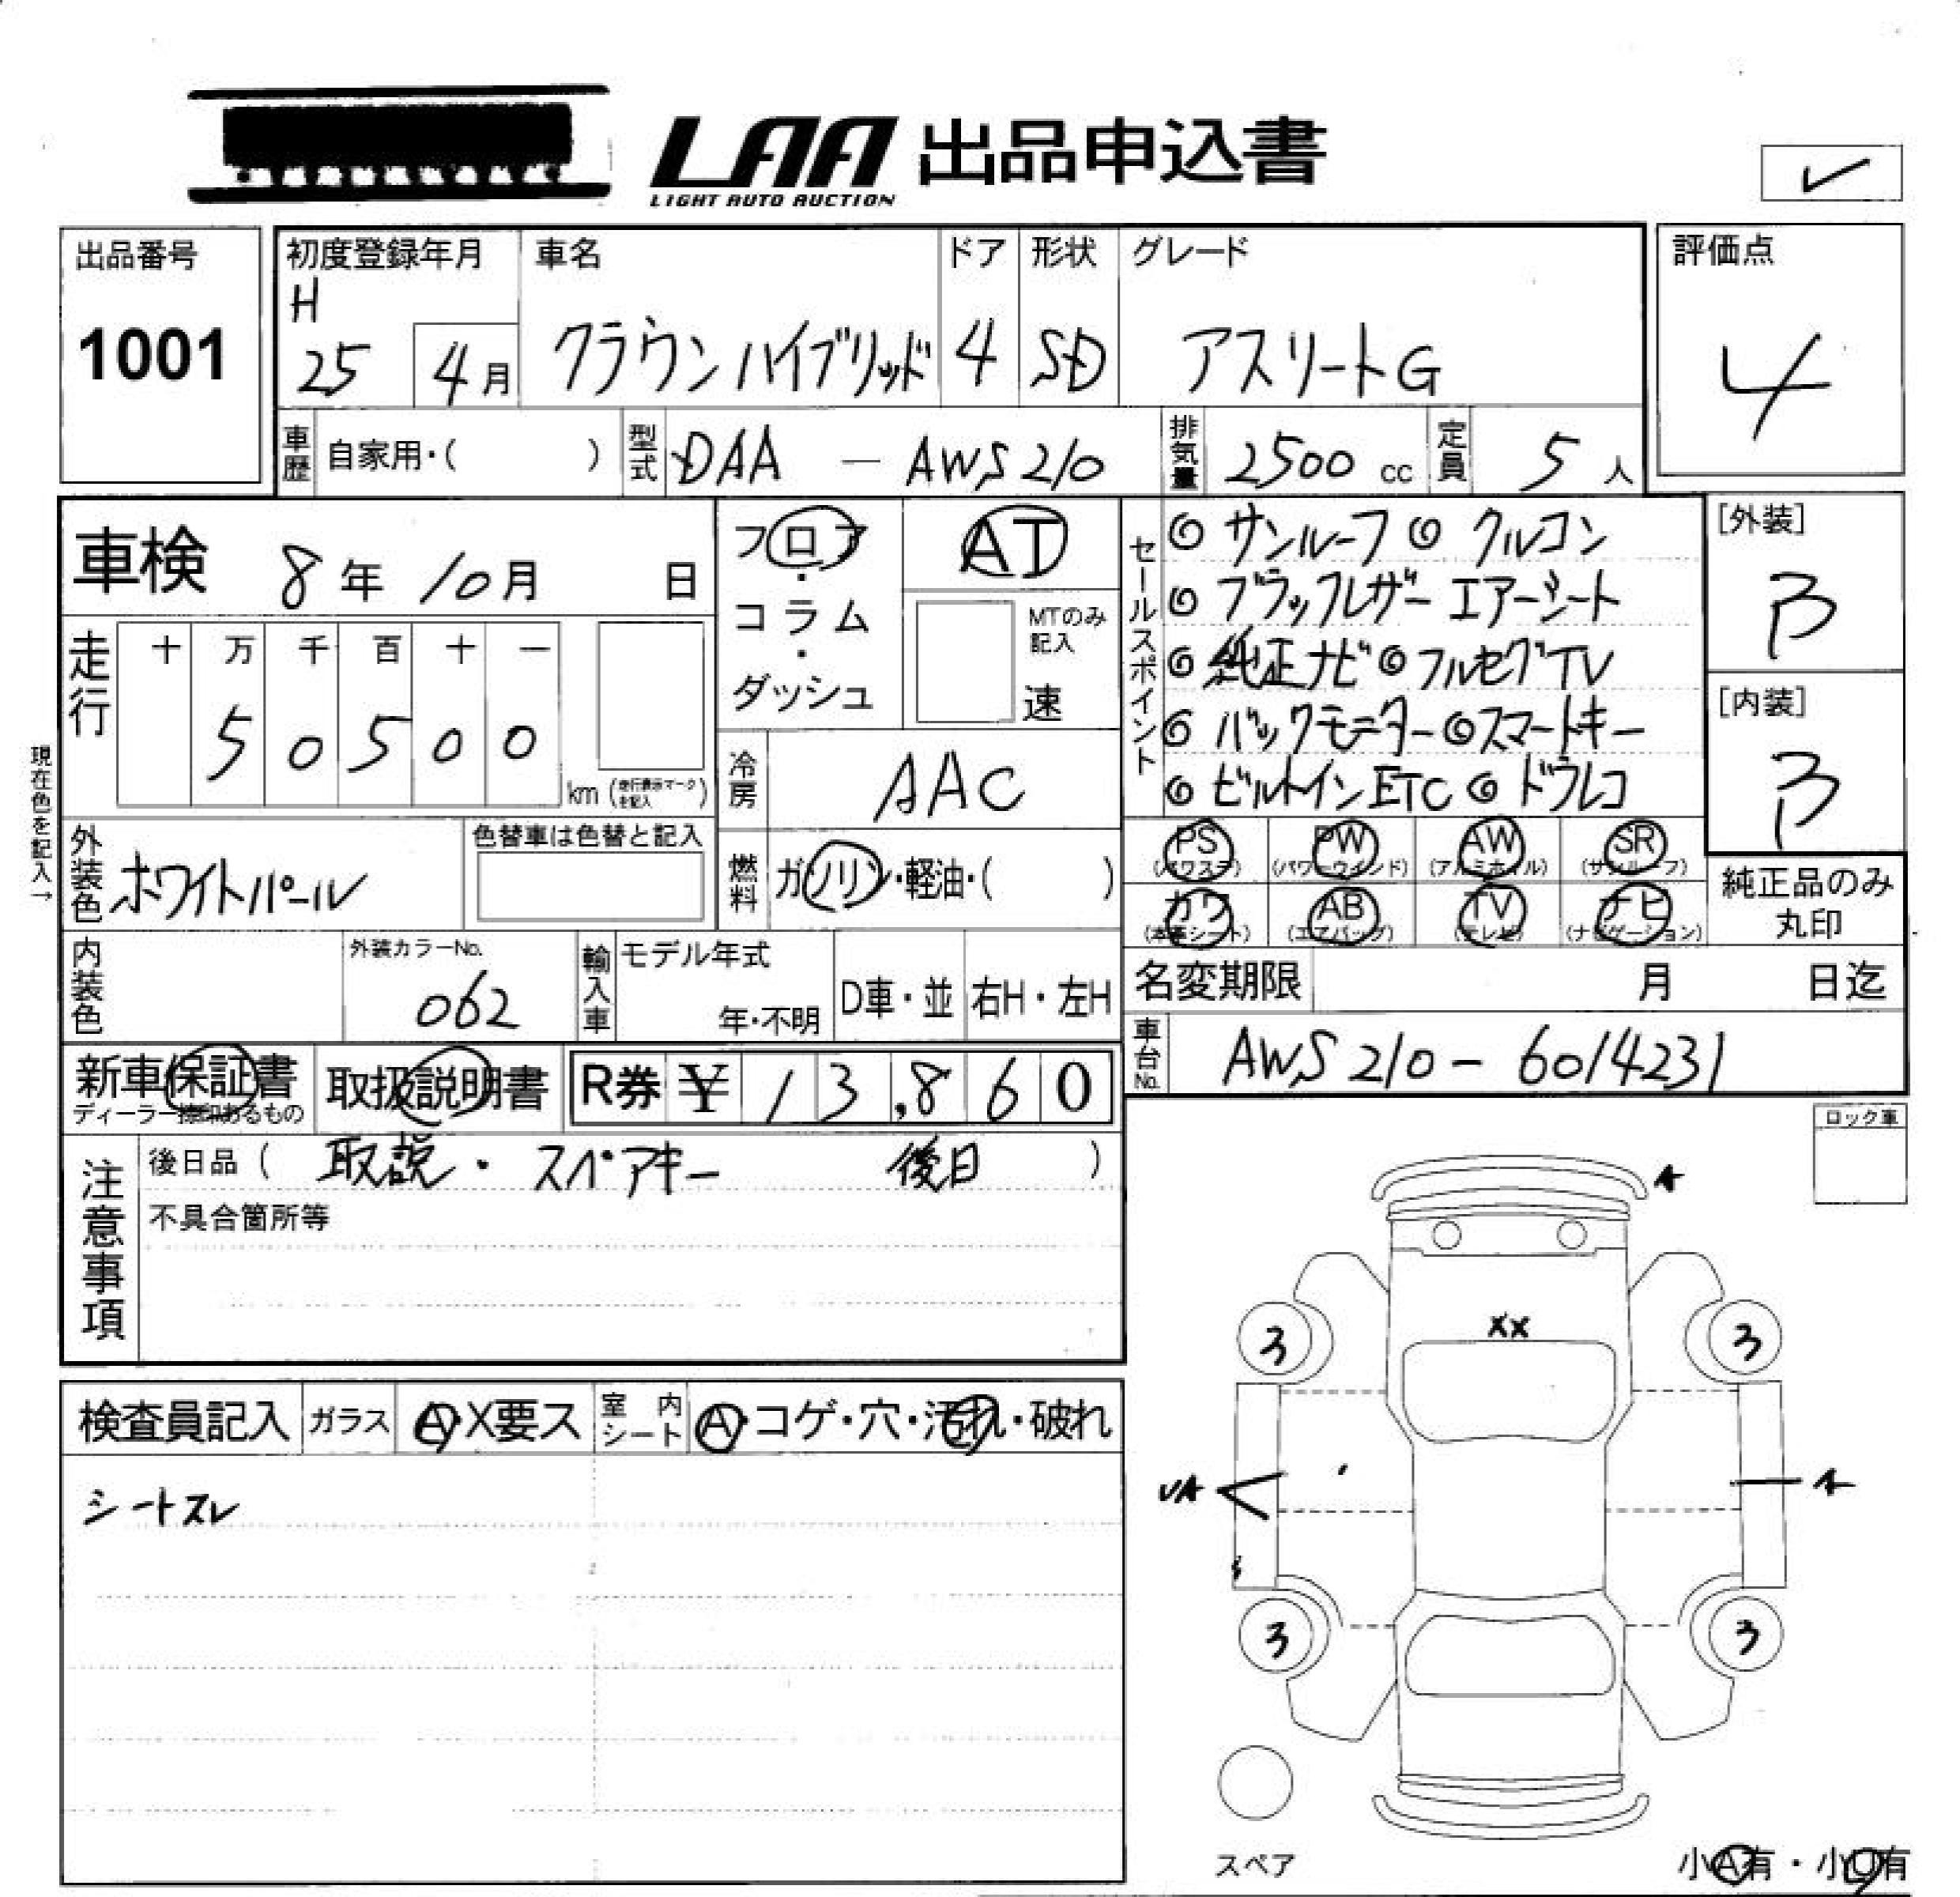 LAA 出品申込書
LIGHT AUTO AUCTION
出品番号 初度登録年月 車名 ドア 形状 グレード 評価点
1001 H 25 4月 クラウンハイブリッド 4 SD アスリートG 4
車歴 自家用・( ) 型式 DAA — AWS210 排気量 2500 cc 定員 5人
車検 8年 10月 日
フロア・コラム・ダッシュ
AT
MTのみ記入
速
セールスポイント
◎サンルーフ ◎クルコン
◎ブラックレザー エアーシート
◎純正ナビ ◎フルセグTV
◎バックモニター ◎スマートキー
◎ビルトインETC ◎ドラレコ
[外装]
B
[内装]
B
走行 十 万 千 百 十 一
5 0 5 0 0
km (走行表示マークを記入)
現在色を記入→
冷房 AAC
外装色 ホワイトパール
色替車は色替と記入
燃料 ガソリン・軽油・( )
PS PW AW SR
(パワステ) (パワーウインド) (アルミホイル) (サンルーフ)
カワ AB TV ナビ
(本革シート) (エアバッグ) (テレビ) (ナビゲーション)
純正品のみ
丸印
内装色
外装カラーNo.
062
輸入車 モデル年式
年・不明
D車・並 右H・左H
名変期限 月 日迄
車台No. AWS210-6014231
新車保証書 取扱説明書 R券 ¥ 13,860
ディーラー捺印あるもの
注意事項
後日品( 取説・スペアキー 後日 )
不具合箇所等
ロック車
検査員記入 ガラス A・X要ス 室内シート A・コゲ・穴・汚れ・破れ
シートスレ
A
XX
3 3
UA A
3 3
スペア
小A有・小U有